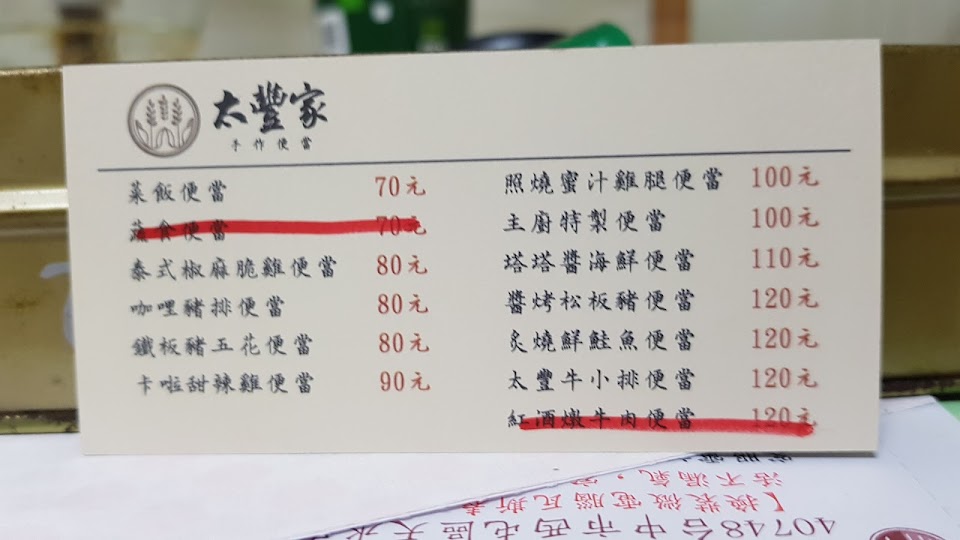 太豐家
手作便當
菜飯便當 70元
蔬食便當 70元
泰式椒麻脆雞便當 80元
咖哩豬排便當 80元
鐵板豬五花便當 80元
卡啦甜辣雞便當 90元
照燒蜜汁雞腿便當 100元
主廚特製便當 100元
塔塔醬海鮮便當 110元
醬烤松板豬便當 120元
炙燒鮮鮭魚便當 120元
太豐牛小排便當 120元
紅酒燉牛肉便當 120元
40748台中市西屯區天水
【換裝微電腦瓦斯表
活不漏氣，